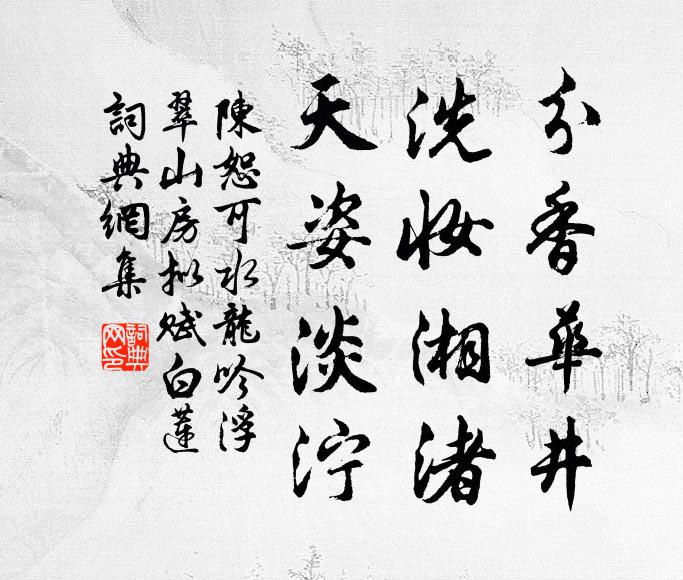 分香華井
洗妝湘渚
天姿淡泞
陳恕可水龍吟浮
翠山房拟赋白蓮
詞典網集
詞典网印